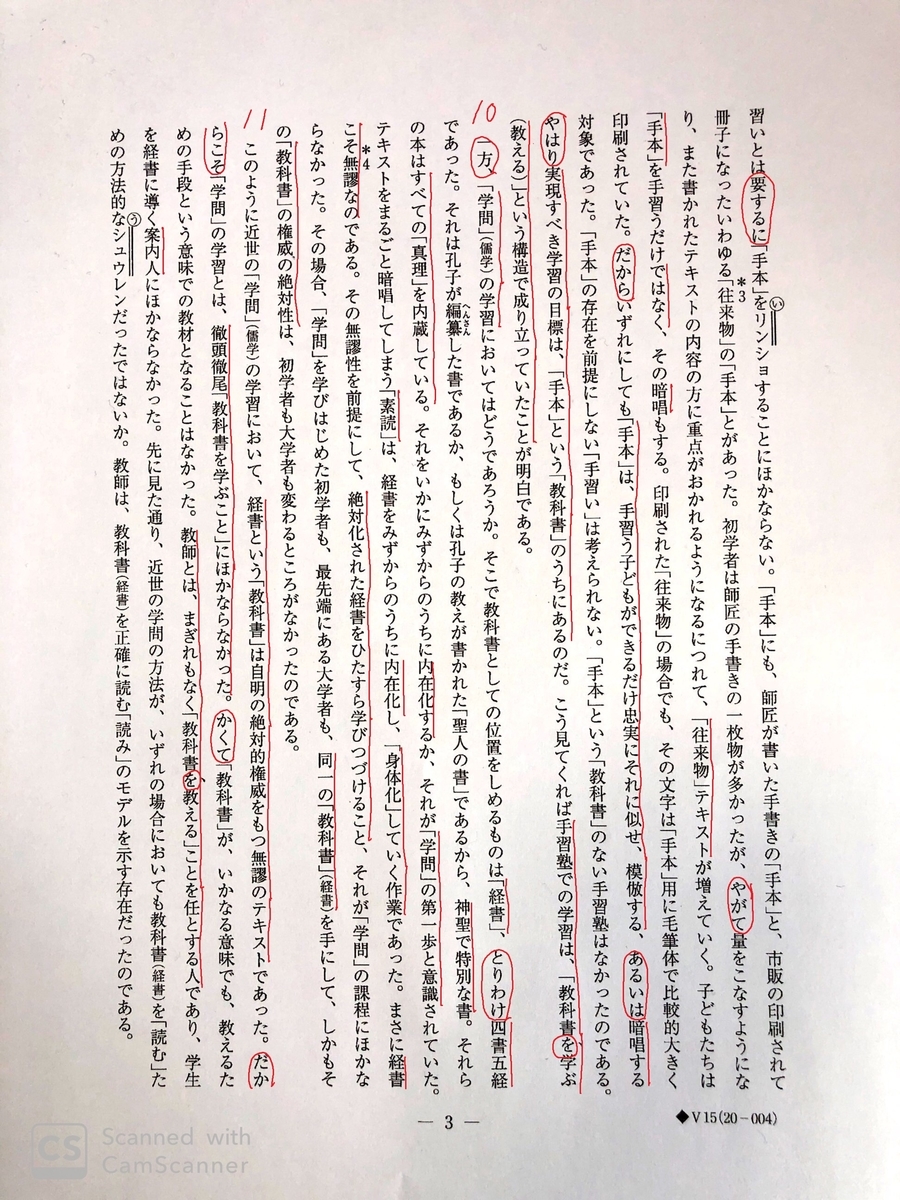 習いとは要するに「手本」をリンショすることにほかならない。「手本」にも、師匠が書いた手書きの「手本」と、市販の印刷されて
冊子になったいわゆる「往来物」の「手本」とがあった。初学者は師匠の手書きの一枚物が多かったが、やがて量をこなすようにな
り、また書かれたテキストの内容の方に重点がおかれるようになるにつれて、「往来物」テキストが増えていく。子どもたちは
「手本」を手習うだけではなく、その暗唱もする。印刷された「往来物」の場合でも、その文字は「手本」用に毛筆体で比較的大きく
印刷されていた。だからいずれにしても「手本」は、手習う子どもができるだけ忠実にそれに似せ、模倣する、あるいは暗唱する
対象であった。「手本」の存在を前提にしない「手習い」は考えられない。「手本」という「教科書」のない手習塾はなかったのである。
やはり実現すべき学習の目標は、「手本」という「教科書」のうちにあるのだ。こう見てくれば手習塾での学習は、「教科書を学ぶ
(教える)」という構造で成り立っていたことが明白である。
10
一方、「学問」(儒学)の学習においてはどうであろうか。そこで教科書としての位置をしめるものは「経書」、とりわけ四書五経
であった。それは孔子が編纂した書であるか、もしくは孔子の教えが書かれた「聖人の書」であるから、神聖で特別な書。それら
の本はすべての「真理」を内蔵している。それをいかにみずからのうちに内在化するか、それが「学問」の第一歩と意識されていた。
テキストをまるごと暗唱してしまう「素読」は、経書をみずからのうちに内在化し、「身体化」していく作業であった。まさに経書
こそ無謬なのである。その無謬性を前提にして、絶対化された経書をひたすら学びつづけること、それが「学問」の課程にほかな
らなかった。その場合、「学問」を学びはじめた初学者も、最先端にある大学者も、同一の「教科書」(経書)を手にして、しかもそ
の「教科書」の権威の絶対性は、初学者も大学者も変わるところがなかったのである。
11
このように近世の「学問」(儒学)の学習において、経書という「教科書」は自明の絶対的権威をもつ無謬のテキストであった。だか
らこそ「学問」の学習とは、徹頭徹尾「教科書を学ぶこと」にほかならなかった。かくて「教科書」が、いかなる意味でも、教えるた
めの手段という意味での教材となることはなかった。教師とは、まぎれもなく「教科書を教える」ことを任とする人であり、学生
を経書に導く案内人にほかならなかった。先に見た通り、近世の学問の方法が、いずれの場合においても教科書(経書)を「読む」た
めの方法的なシュウレンだったではないか。教師は、教科書(経書)を正確に読む「読み」のモデルを示す存在だったのである。
い
*3
へんさん
*4
う
— 3 —
◆V15(20－004)
CS Scanned with
CamScanner